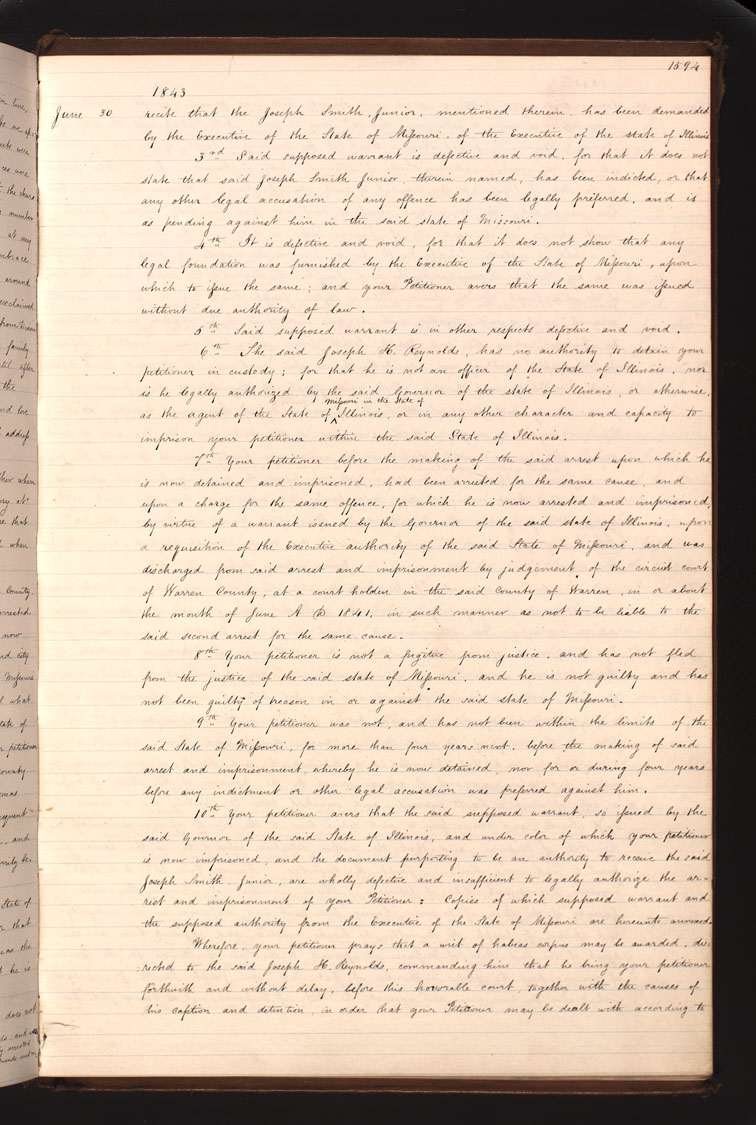 1594
1843
June 30 recite that the Joseph Smith, Junior, mentioned therein, has been demanded
by the Executive of the State of Missouri, of the Executive of the state of Illinois
3rd Said supposed warrant is defective and void, for that it does not
state that said Joseph Smith Junior, therein named, has been indicted, or that
any other legal accusation of any offence has been legally preferred, and is
as pending against him in the said state of Missouri.
4th It is defective and void, for that it does not show that any
legal foundation was furnished by the Executive of the State of Missouri, upon
which to issue the same; and your Petitioner avers that the same was issued
without due authority of law.
5th Said supposed warrant is in other respects defective and void.
6th The said Joseph H. Reynolds, has no authority to detain your
petitioner in custody; for that he is not an officer of the State of Illinois, nor
is he legally authorized by the said Governor of the state of Illinois, or otherwise,
Missouri in the State of
as the agent of the State of ^ Illinois, or in any other character and capacity to
imprison your petitioner within the said State of Illinois.
7th Your petitioner before the making of the said arrest upon which he
is now detained and imprisoned, had been arrested for the same cause, and
upon a charge for the same offence, for which he is now arrested and imprisoned,
by virtue of a warrant issued by the Governor of the said state of Illinois, upon
a requisition of the Executive authority of the said State of Missouri, and was
discharged from said arrest and imprisonment by judgement of the circuit court
of Warren County, at a court holden in the said County of Warren, in or about
the month of June A D 1841, in such manner as not to be liable to the
said second arrest for the same cause.
8th Your petitioner is not a fugitive from justice, and has not fled
from the justice of the said state of Missouri, and he is not guilty and has
not been guilty of treason in or against the said state of Missouri.
9th Your petitioner was not, and has not been within the limits of the
said State of Missouri, for more than four years next, before the making of said
arrest and imprisonment, whereby he is now detained, nor for or during four years
before any indictment or other legal accusation was preferred against him.
10th Your petitioner avers that the said supposed warrant, so issued by the
said Governor of the said State of Illinois, and under color of which your petitioner
is now imprisoned, and the document purporting to be an authority to receive the said
Joseph Smith Junior, are wholly defective and insufficient to legally authorize the ar-
rest and imprisonment of your Petitioner: Copies of which supposed warrant and
the supposed authority from the Executive of the State of Missouri are hereunto annexed.
Wherefore, your petitioner prays that a writ of habeas corpus may be awarded, di-
rected to the said Joseph H. Reynolds, commanding him that he bring your petitioner
forthwith and without delay, before this honorable court, together with the causes of
his caption and detention, in order that your Petitioner may be dealt with according to